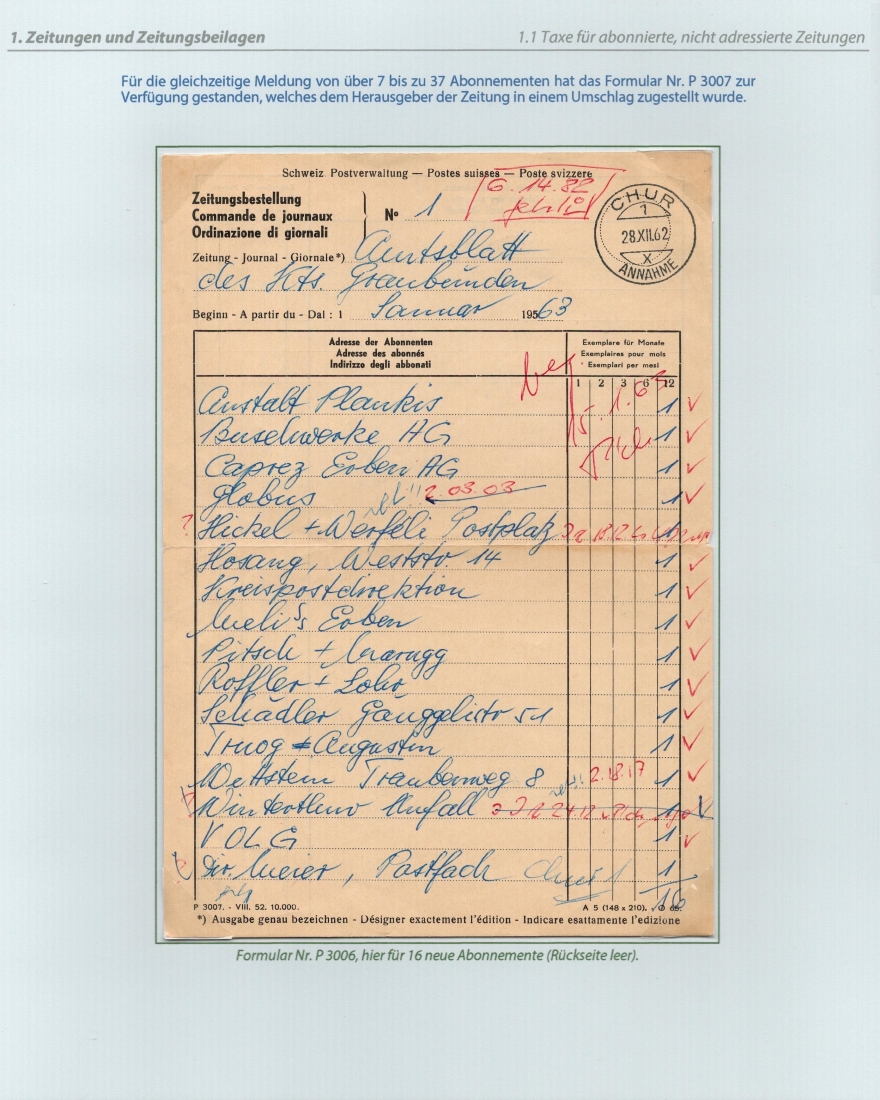 1. Zeitungen und Zeitungsbeilagen
1.1 Taxe für abonnierte, nicht adressierte Zeitungen
Für die gleichzeitige Meldung von über 7 bis zu 37 Abonnementen hat das Formular Nr. P 3007 zur
Verfügung gestanden, welches dem Herausgeber der Zeitung in einem Umschlag zugestellt wurde.
Schweiz Postverwaltung — Postes suisses — Poste svizzere
6. 14. 82
Zeitungsbestellung
Commande de journaux
Ordinazione di giornali
No 1
CHUR
1
28.XII.62
X
ANNAHME
Zeitung - Journal - Giornale*) Amtsblatt
des Kts Graubünden
Beginn - A partir du - Dal : 1 Januar 195 63
Adresse der Abonnenten
Adresse des abonnés
Indirizzo degli abbonati
Exemplare für Monate
Exemplaires pour mois
Esemplari per mesi
1 2 3 6 12
Anstalt Plankis 1
Buschwerke AG 1
Caprez Erben AG 1
Globus 2.03.03 1
Hickel + Werfeli Postplatz
Hosang, Weststr. 14 1
Kreispostdirektion 1
Meli's Erben 1
Pitsch + Marugg 1
Roffler + Lohr 1
Schädler Gäuggelistr 51 1
Truog Augustin 1
Wettstein Traubenweg 8 2.18.17 1
Winterthur Unfall
VOLG 1
Dir. Meier, Postfach 1
16
P 3007. - VIII. 52. 10.000.
A 5 (148 x 210).
*) Ausgabe genau bezeichnen - Désigner exactement l'édition - Indicare esattamente l'edizione
Formular Nr. P 3006, hier für 16 neue Abonnemente (Rückseite leer).